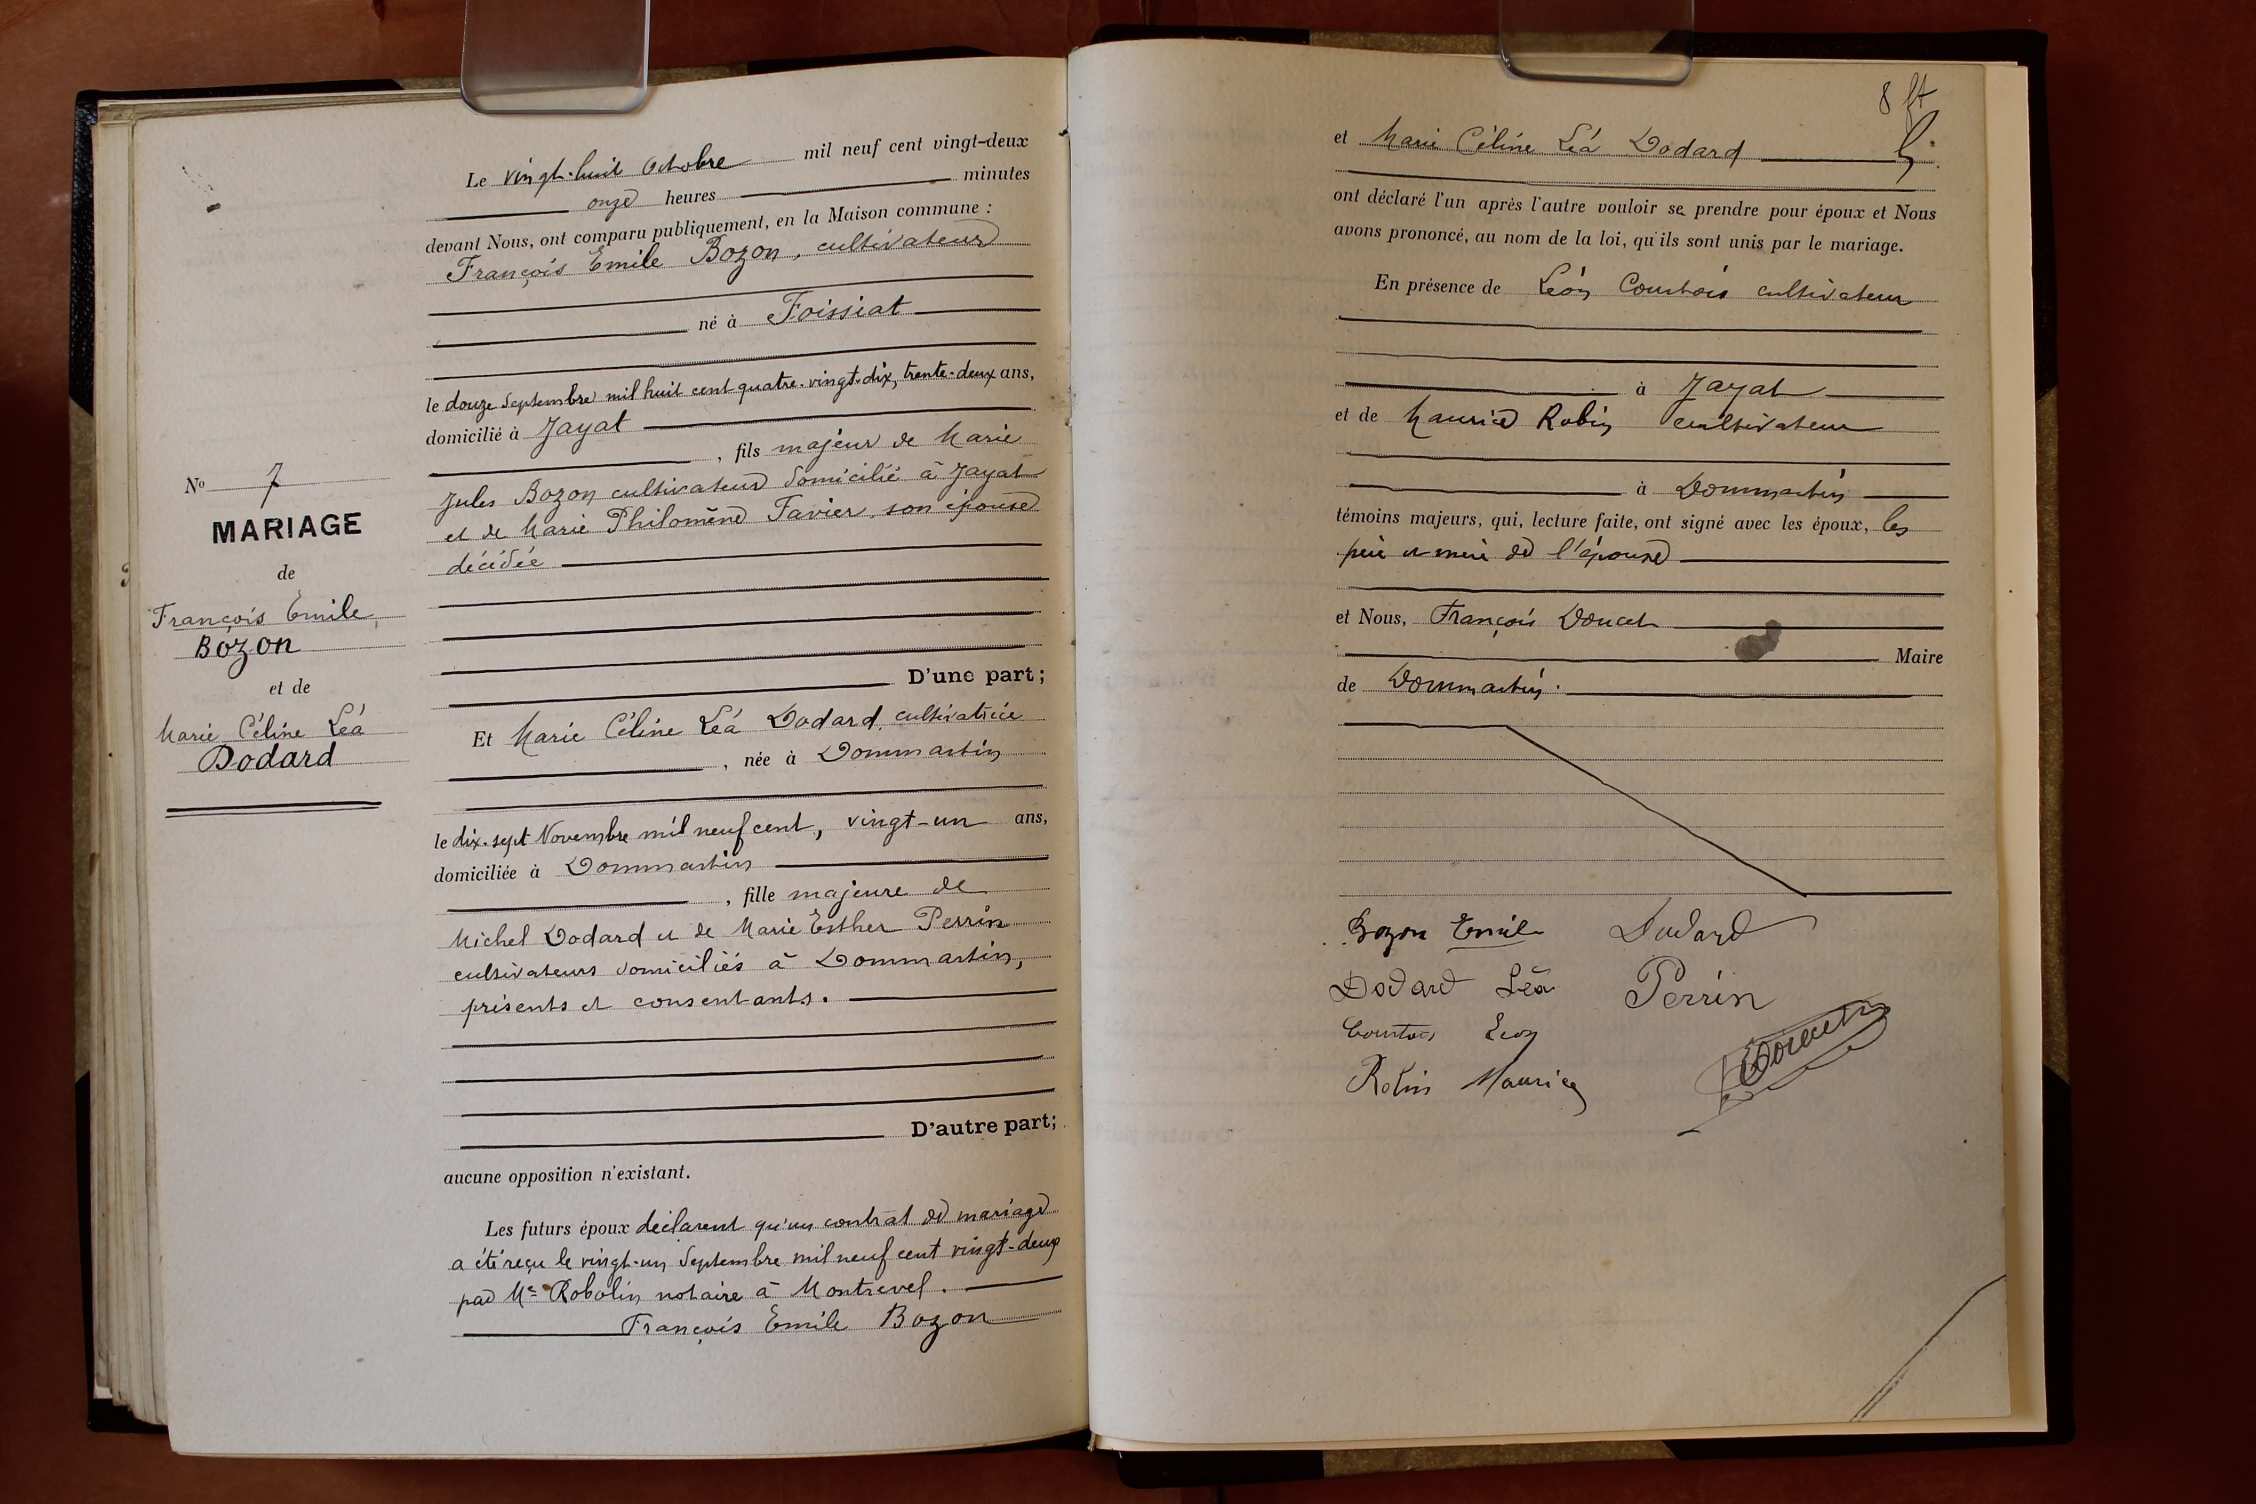 Nº 7
MARIAGE
de
François Emile
Bozon
et de
Marie Céline Léa
Dodard
Le vingt-huit Octobre mil neuf cent vingt-deux
onze heures minutes
devant Nous, ont comparu publiquement, en la Maison commune :
François Emile Bozon, cultivateur
né à Foissiat
le douze Septembre mil huit cent quatre-vingt-dix, trente-deux ans,
domicilié à Jayat
, fils majeur de Marie
Jules Bozon cultivateur domicilié à Jayat
et de Marie Philomène Favier, son épouse
décédée
D'une part;
Et Marie Céline Léa Dodard, cultivatrice
, née à Dommartin
le dix-sept Novembre mil neuf cent, vingt-un ans,
domiciliée à Dommartin
, fille majeure de
Michel Dodard et de Marie Esther Perrin
cultivateurs domiciliés à Dommartin,
présents et consentants.
D'autre part;
aucune opposition n'existant.
Les futurs époux déclarent qu'un contrat de mariage
a été reçu le vingt-un Septembre mil neuf cent vingt-deux
par Me Robolin notaire à Montrevel.
François Emile Bozon
8 ft
et Marie Céline Léa Dodard
ont déclaré l'un après l'autre vouloir se prendre pour époux et Nous
avons prononcé, au nom de la loi, qu'ils sont unis par le mariage.
En présence de Léon Courtois cultivateur
à Jayat
et de Maurice Robin cultivateur
à Dommartin
témoins majeurs, qui, lecture faite, ont signé avec les époux, les
père et mère de l'épouse
et Nous, François Doucet
Maire
de Dommartin.
Bozon Emile Dodard
Dodard Léa Perrin
Courtois Léon
Robin Maurice
Doucet